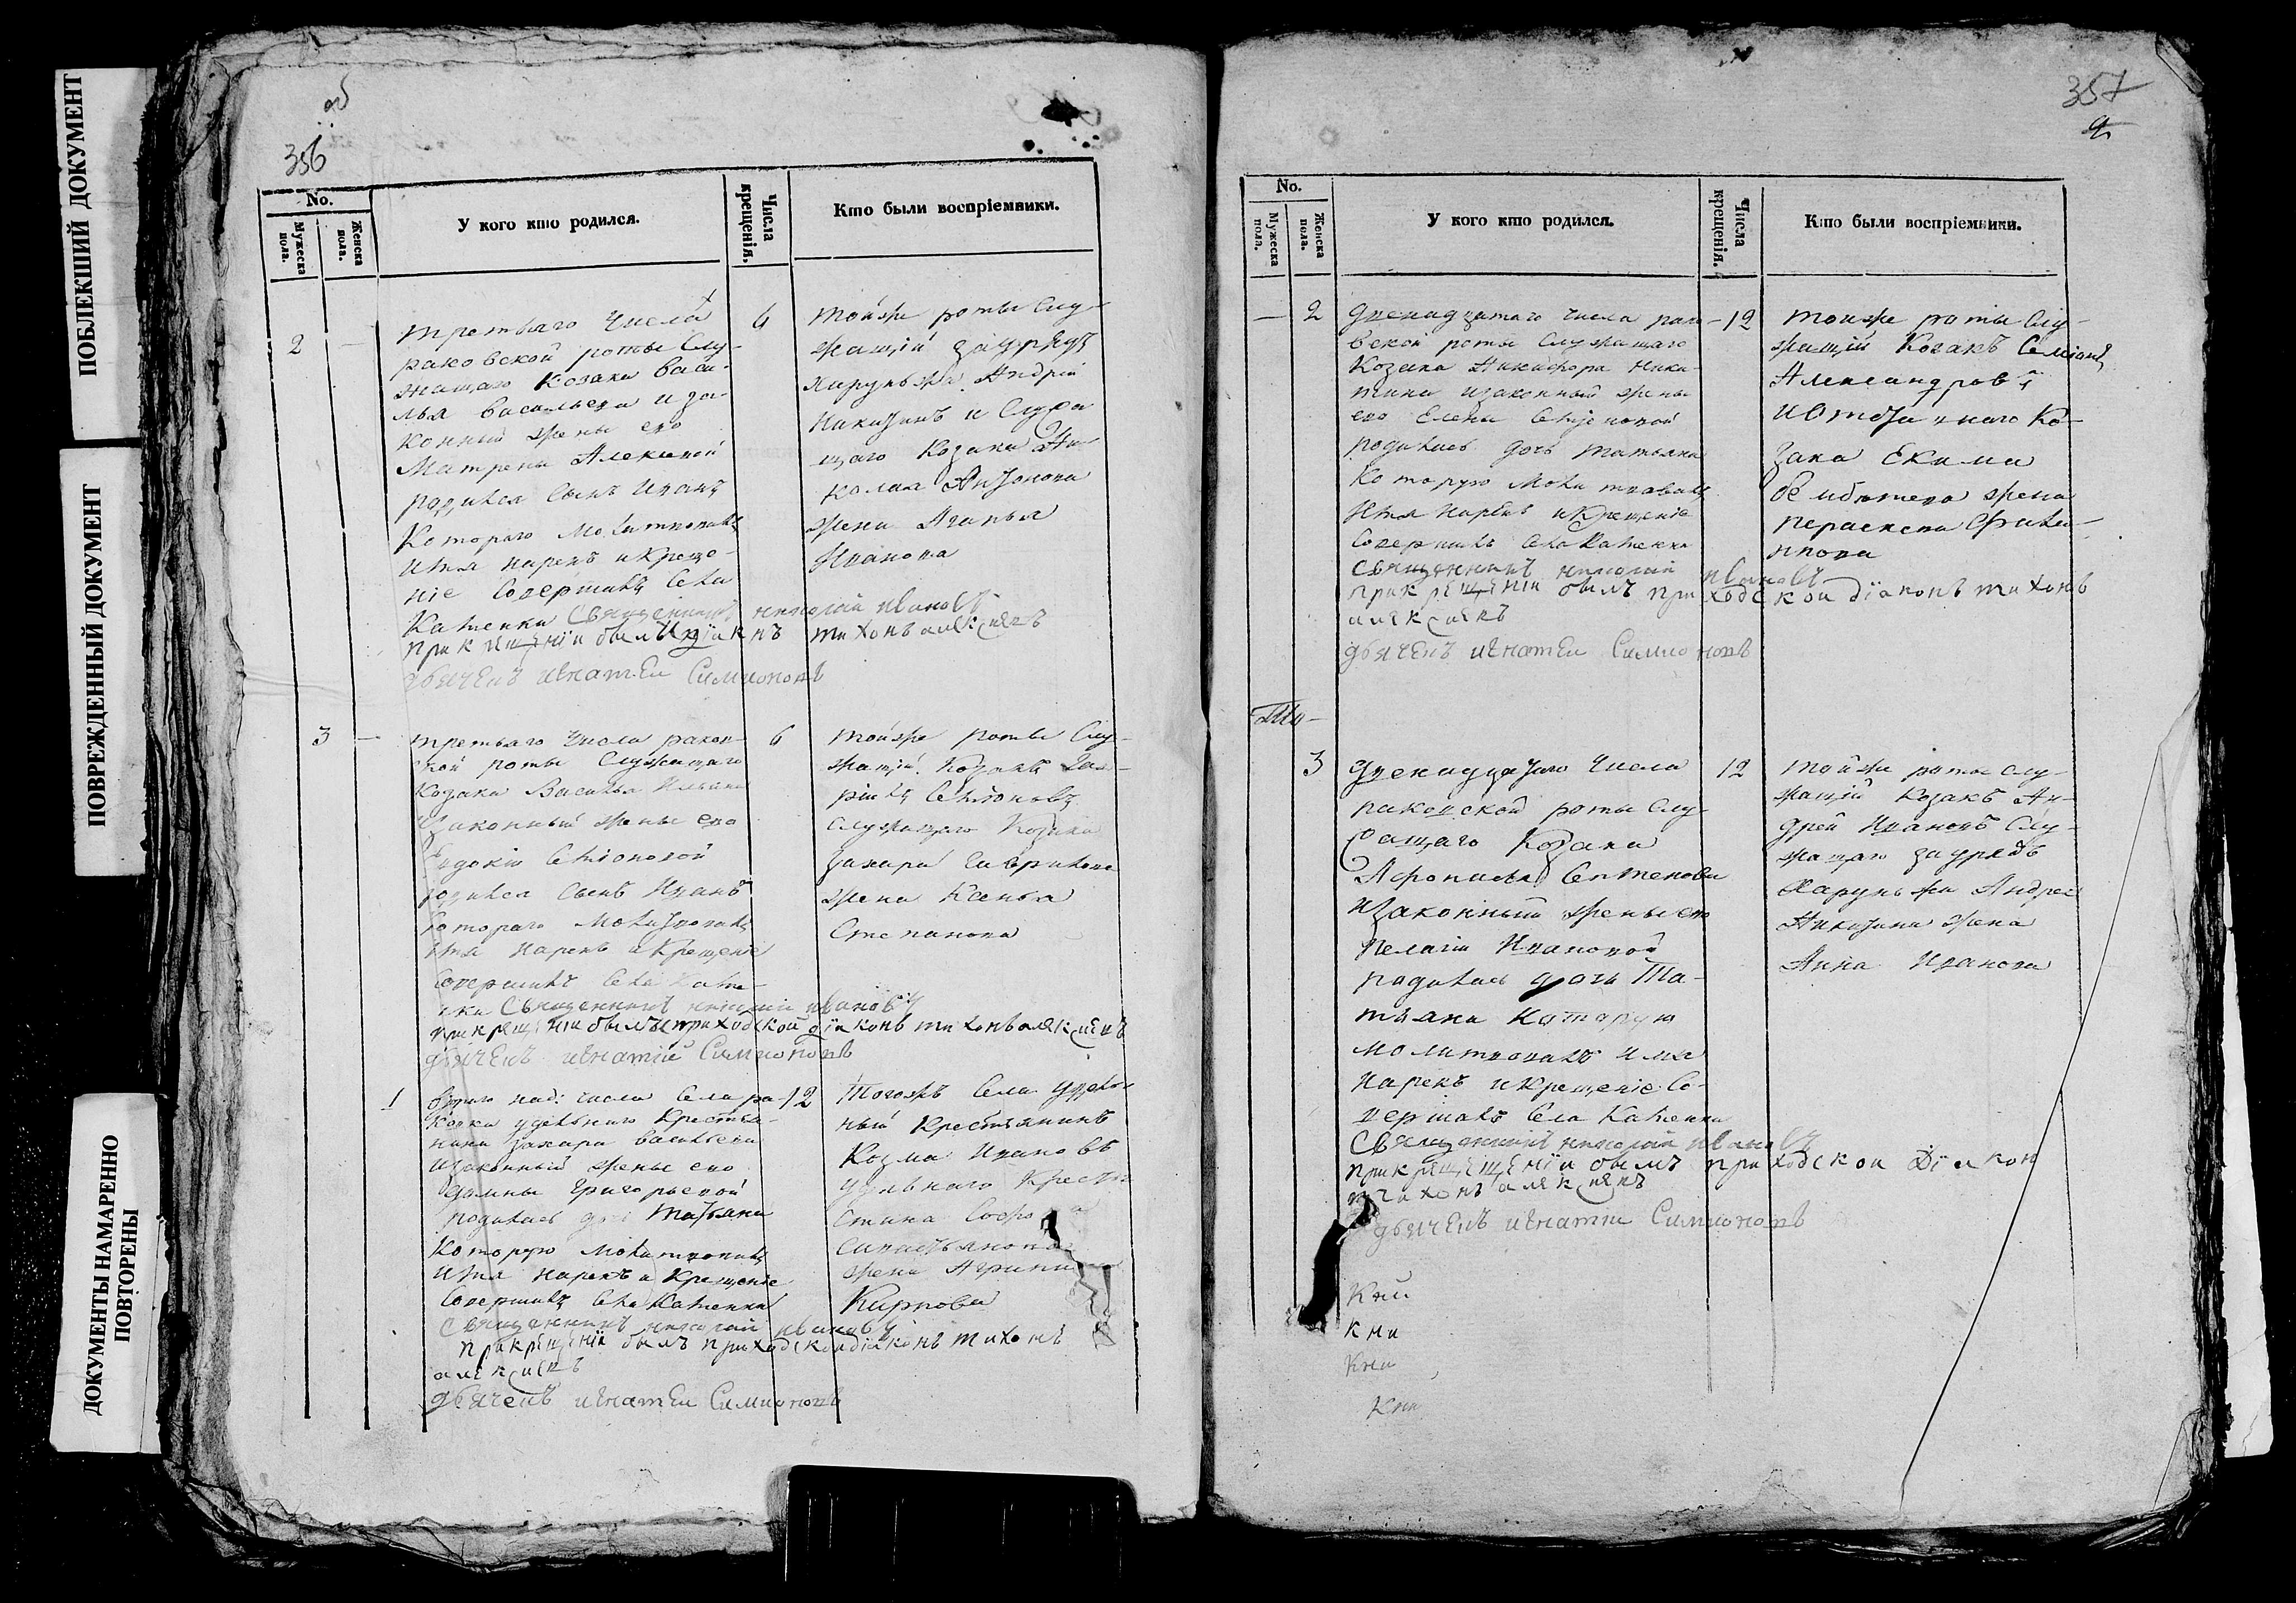 ПОБЛЕКШИЙ ДОКУМЕНТ
ПОВРЕЖДЕННЫЙ ДОКУМЕНТ
ДОКУМЕНТЫ НАМАРЕННО
ПОВТОРЕНЫ
об
356
No.
Мужеска пола.
Женска пола.
У кого кто родился.
Числа крещенія.
Кто были воспріемники.
2
третьяго числа
раковской роты Слу-
жащаго козака васи-
лья васильева и за-
конный жены его
Матрены Алекиной
родился Сынъ Иванъ
Котораго Молитвовалъ
имя нарекъ и Креще-
ніе Совершилъ Села
Катенки Священникъ николай ивановъ
при крещеніи былъ діаконъ тихонъ алексиевъ
дьячекъ игнатеи Симионовъ
6
тойже роты Слу-
жащій зауряд
харунжи Андрей
Никитинъ и Служа
щаго Козака Ни-
колая Антонова
жена Агапья
Иванова
3
третьяго числа раков-
ской роты Служащаго
Козака Василья Ильина
изаконный жены его
Евдокіи Семіоновой
родился Сынъ Иванъ
котораго Молитвовалъ
имя нарекъ и Крещеніе
Совершилъ Села Кате-
нки Священникъ николай ивановъ
при крещеніи былъ приходской діаконъ тихонъ алексиевъ
дьячекъ игнатіи Симионовъ
6
тойже роты Слу-
жащій Козакъ
Семіоновъ
Служащаго Козака
Захара Гаврилова
жена Ксенья
Степанова
1
втораго надс числа Села ра-
ковки удельнаго Крестья-
нина Захара васильева
изаконный жены его
домны Григорьевой
родилась дочь Татьяна
Которую Молитвовалъ
имя нарекъ и Крещеніе
Совершилъ Села Катенки
Священникъ николай ивановъ
при крещеніи былъ приходской діяконъ тихонъ
алексиевъ
дьячекъ игнатеи Симионовъ
12
Тогожъ Села удель-
ный Крестьянинъ
Козма Ивановъ
удельнаго Кресть
жена Агрипи
Карпова
357
No.
Мужеска пола.
Женска пола.
У кого кто родился.
Числа крещенія.
Кто были воспріемники.
2
двенадцатаго числа рако-
вской роты Служащаго
Козака Никифора Ники-
тина изаконный жены
его Елены Семіоновой
родилась дочь татьяна
Которую Молитвовалъ
Имя Нарекъ и Крещеніе
Совершилъ Села Катенки
Священникъ николай ивановъ
при крещеніи былъ приходской діаконъ тихонъ
алексиевъ
дьячекъ игнатеи Симионовъ
12
тойже роты Слу-
жащій Козакъ Семіонъ
Александровъ
и Отставнаго Ко-
зака Екима
жена
пераскева Фили-
ппова
3
двенадцатаго Числа
раковской роты Слу
жащаго Козака
Афонасья Семенова
изаконный жены его
Пелагіи Ивановой
родилась дочь Та-
тьяна Которую
молитвовалъ имя
Нарекъ и Крещеніе Со-
вершилъ Села Катенки
Священникъ николай ивановъ
при крещеніи былъ приходской Діакон
тихонъ алексиевъ
дьячекъ игнатіи Симионовъ
12
тойже роты слу-
жащій Козакъ Ан-
дрей Ивановъ Слу-
жащаго заурядъ
Харунжи Андрея
Никитина жена
Анна Иванова
Кни
кни
Кни
Кни